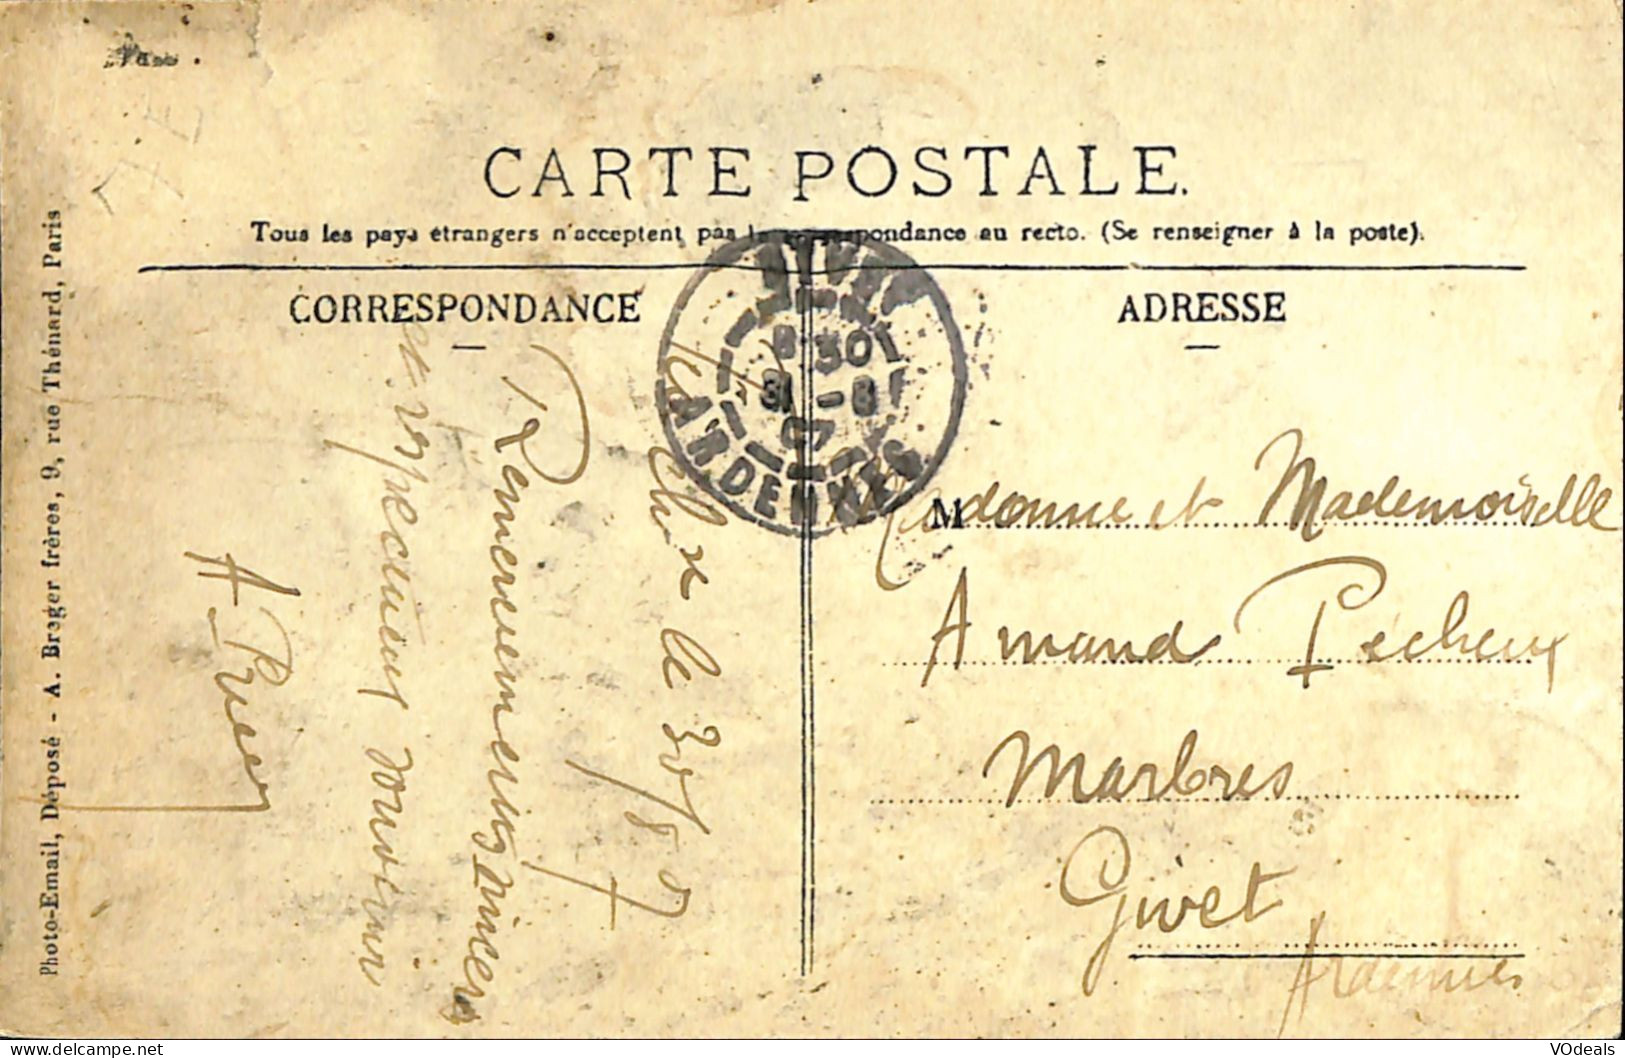 CARTE POSTALE.
Tous les pays étrangers n'acceptent pas la correspondance au recto. (Se renseigner à la poste).
CORRESPONDANCE
ADRESSE
Photo-Email, Déposé - A. Breger frères, 9, rue Thénard, Paris
GIVET
8 30
31 -8
07
ARDENNES
le 30/8 07
Remerciements sincères
et respectueux souvenir
A
M
et Mademoiselle
Armand Pécheux
Marbres
Givet
Ardennes
VOdeals